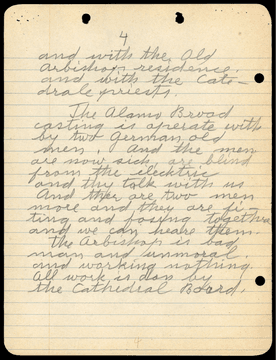 4
and with the Old
Arbishop residence.
and with the Cate-
drale priests.
The Alamo Broad
casting is operate with
by two German old
men. And the men
are now sick, are blind
from the elecktric
and they talk with us
And ther are two men
more and they are
ting and together
and we can heare them.
the Arbishop is bad
man and unmoral.
and working nothing
All work is don by
the Cathedral Board.